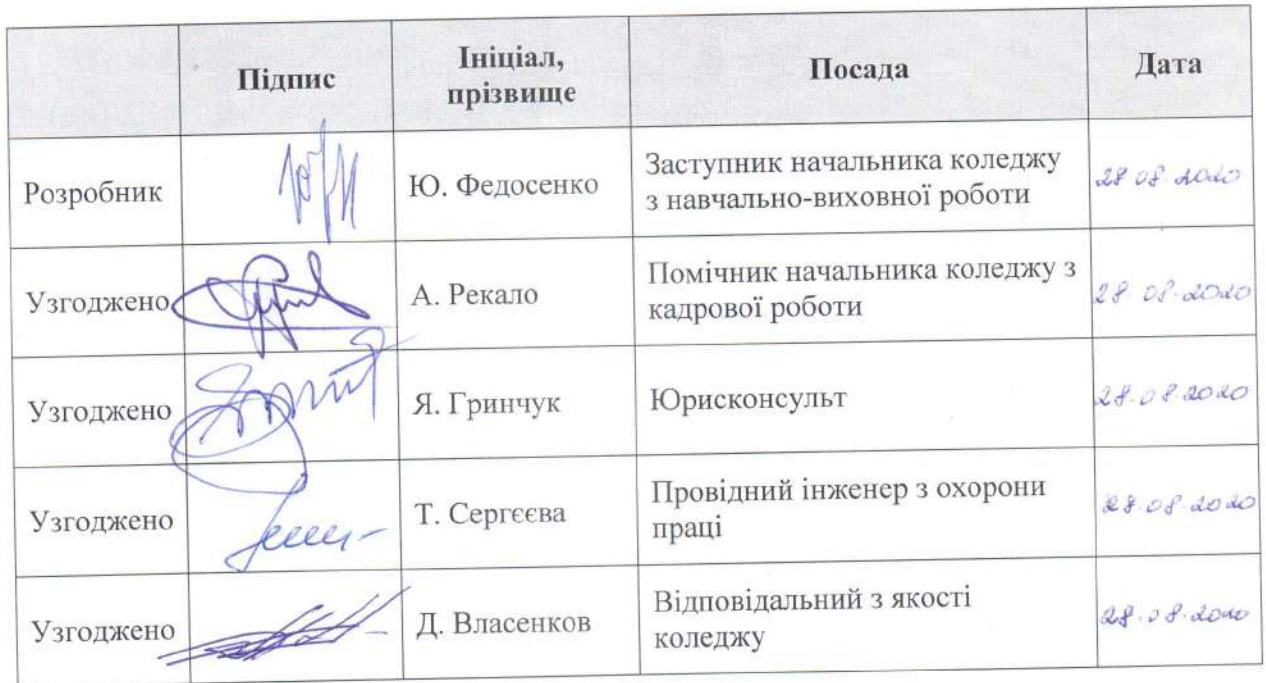 Підпис
Ініціал,
прізвище
Посада
Дата
Розробник
Ю. Федосенко
Заступник начальника коледжу
з навчально-виховної роботи
28 08 2020
Узгоджено
А. Рекало
Помічник начальника коледжу з
кадрової роботи
28.08.2020
Узгоджено
Я. Гринчук
Юрисконсульт
28.08.2020
Узгоджено
Т. Сергєєва
Провідний інженер з охорони
праці
28.08.2020
Узгоджено
Д. Власенков
Відповідальний з якості
коледжу
28.08.2020